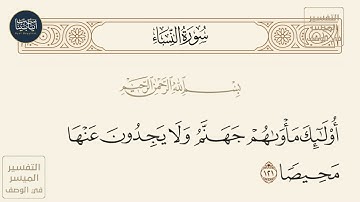 سُورَةُ النِّسَاءِ
التفسير
الميسر
في الوصف
بِسْمِ اللَّهِ الرَّحْمَٰنِ الرَّحِيمِ
أُوْلَـٰٓئِكَ مَأۡوَىٰهُمۡ جَهَنَّمُ وَلَا يَجِدُونَ عَنۡهَا
مَحِيصٗا ١٢١
التفسير
الميسر
في الوصف